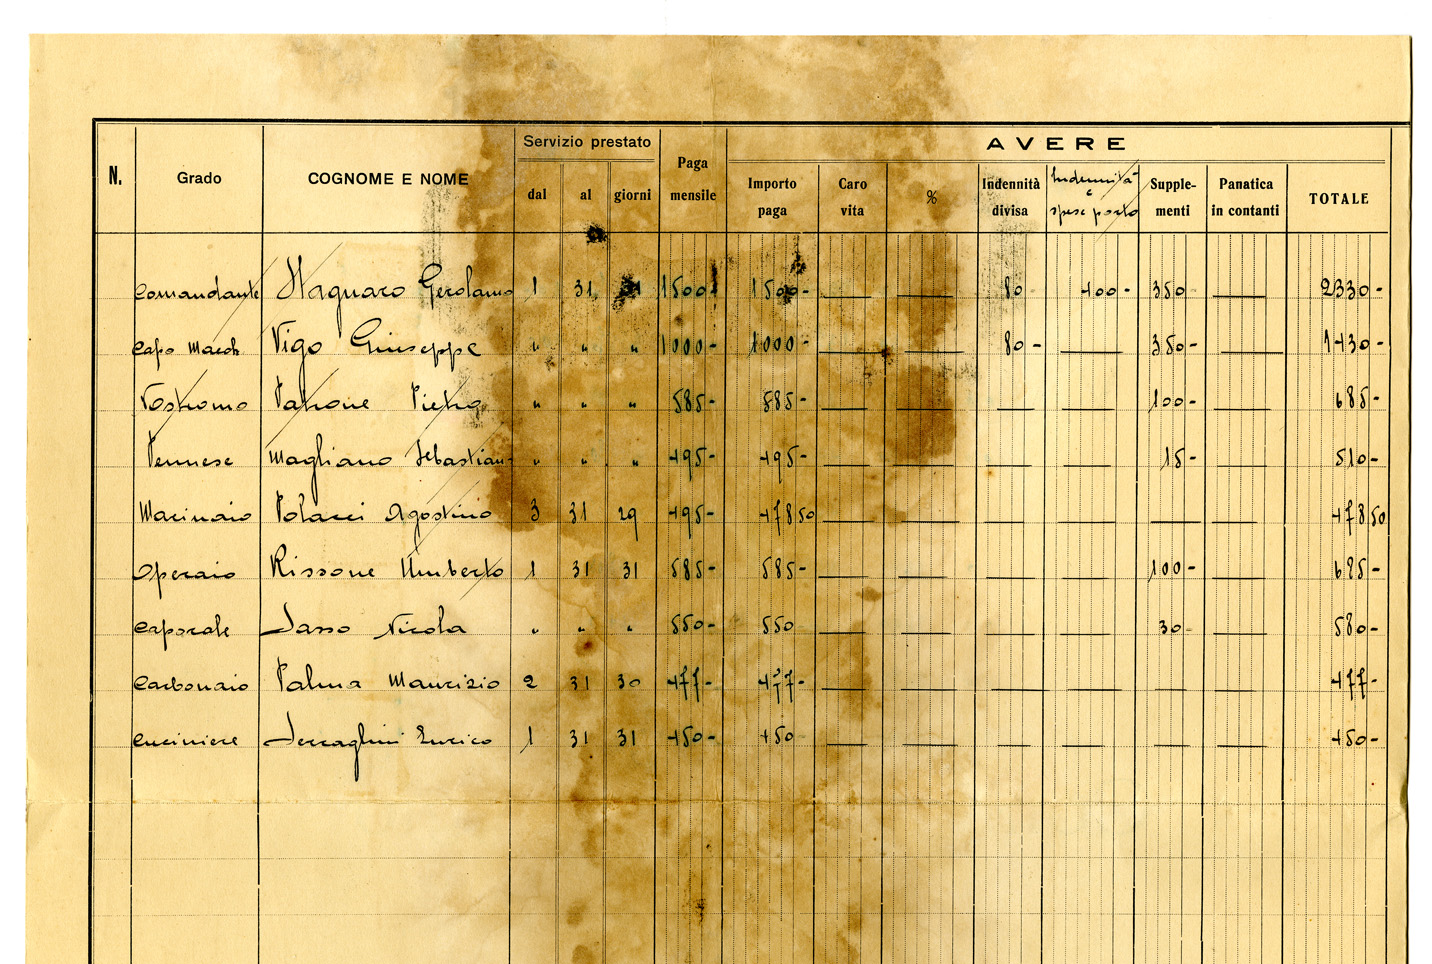 AVERE
Servizio prestato
N. Grado COGNOME E NOME dal al giorni Paga mensile Importo paga Caro vita % Indennità divisa Indennità e spese porto Supplementi Panatica in contanti TOTALE
Comandante Stagnaro Gerolamo 1 31 31 1500- 1500- 80- 400- 350- 2330-
Capo Macch Vigo Giuseppe " " " 1000- 1000- 80- 350- 1430-
Nostromo Patrone Pietro " " " 585- 585- 100- 685-
Pennese Magliano Sebastiano " " " 495- 495- 15- 510-
Marinaio Polacci Agostino 3 31 29 495- 478 50 478 50
Operaio Rissone Umberto 1 31 31 585- 585- 100- 685-
Caporale Sasso Nicola " " " 550- 550 30- 580-
Carbonaio Palma Maurizio 2 31 30 477- 477- 477-
Cuciniere Serraghini Enrico 1 31 31 450- 450 450-